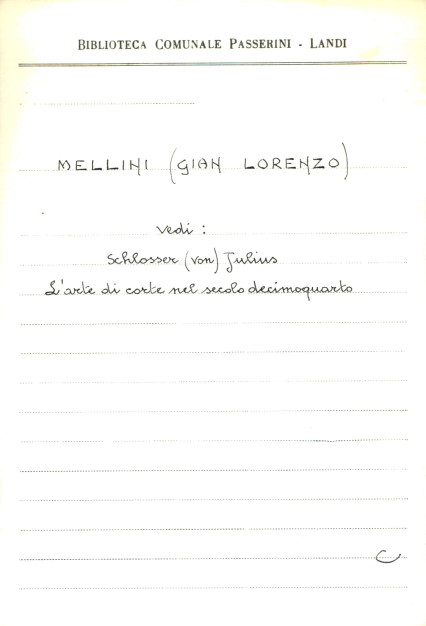 BIBLIOTECA COMUNALE PASSERINI - LANDI
MELLINI (GIAN LORENZO)
vedi :
Schlosser (von) Julius
L'arte di corte nel secolo decimoquarto
C